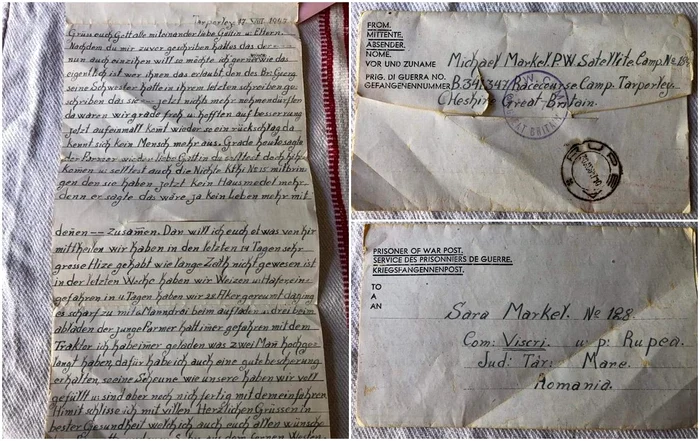 Tarperley, 17. VIII. 1947
Gruss euch Gott alle miteinander liebe Gattin u. Eltern.
Nachdem du mir zuvor geschriben hattes das der ----
nun auch einzihen will so möchte ich gerne wie das
eigentlich ist wer ihnen das erlaubt, den des Br: Georg
seine Schwester hatte in ihrem letzten schreiben ge
schriben das sie --- jetzt nichts mehr nehmen dürften
da waren wir grade froh u. hofften auf besserung
jetzt auf einmall kemt wieder so ein rückschlag da
kennt sich kein Mensch mehr aus. Grade heute sagte
der Farmer wieder liebe Gattin du solltest doch hih
komen u. solltest auch die Nichte Kth: № 15 mitbrin
gen den sie haben jetzt kein Hausmedel mehr
denn er sagte das wäre ja kein leben mehr mit
denen --- zusamen. Dan will ich euch etwas von hir
mittheilen wir haben in den letzten 14 Tagen sehr
grosse Hize gehabt wie lange Zeith nicht gewesen ist
in der letzten Woche haben wir Weizen u. Hafer eine
gefahren in 4 Tagen haben wir 28 Aker gereumt da ging
es scharf zu mit 4 Mann drei beim aufladen u. drei beim
abladen der junge Farmer hatt imer gefahren mit dem
Traktor ich hab imer geladen was zwei Man hochge
langt haben, dafür habe ich auch eine gute bescherung
erhalten, so eine Scheune wie unsere haben wir voll
gefüllt u. sind aber noch nich fertig mit dem einfahren
Himit schlisse ich mit villen Herzlichen Grüssen in
bester Gesundheit welch ich auch euch allen wünsche
FROM.
MITTENTE.
ABSENDER.
NOME.
VOR UND ZUNAME Michael Markel. P.W. Satellite Camp. № 189
PRIG. DI GUERRA NO.
GEFANGENENNUMMER B. 341347. Racecourse Camp. Tarperley.
Cheshire Great-Britain.
P.W. CAMP
GREAT BRITAIN
RUPEA
PRISONER OF WAR POST.
SERVICE DES PRISONNIERS DE GUERRE.
KRIEGSFANGENNENPOST.
TO
A
AN
Sara Markel. № 128.
Com: Viscri. u. p: Rupea.
Jud: Târ: Mare.
Romania.